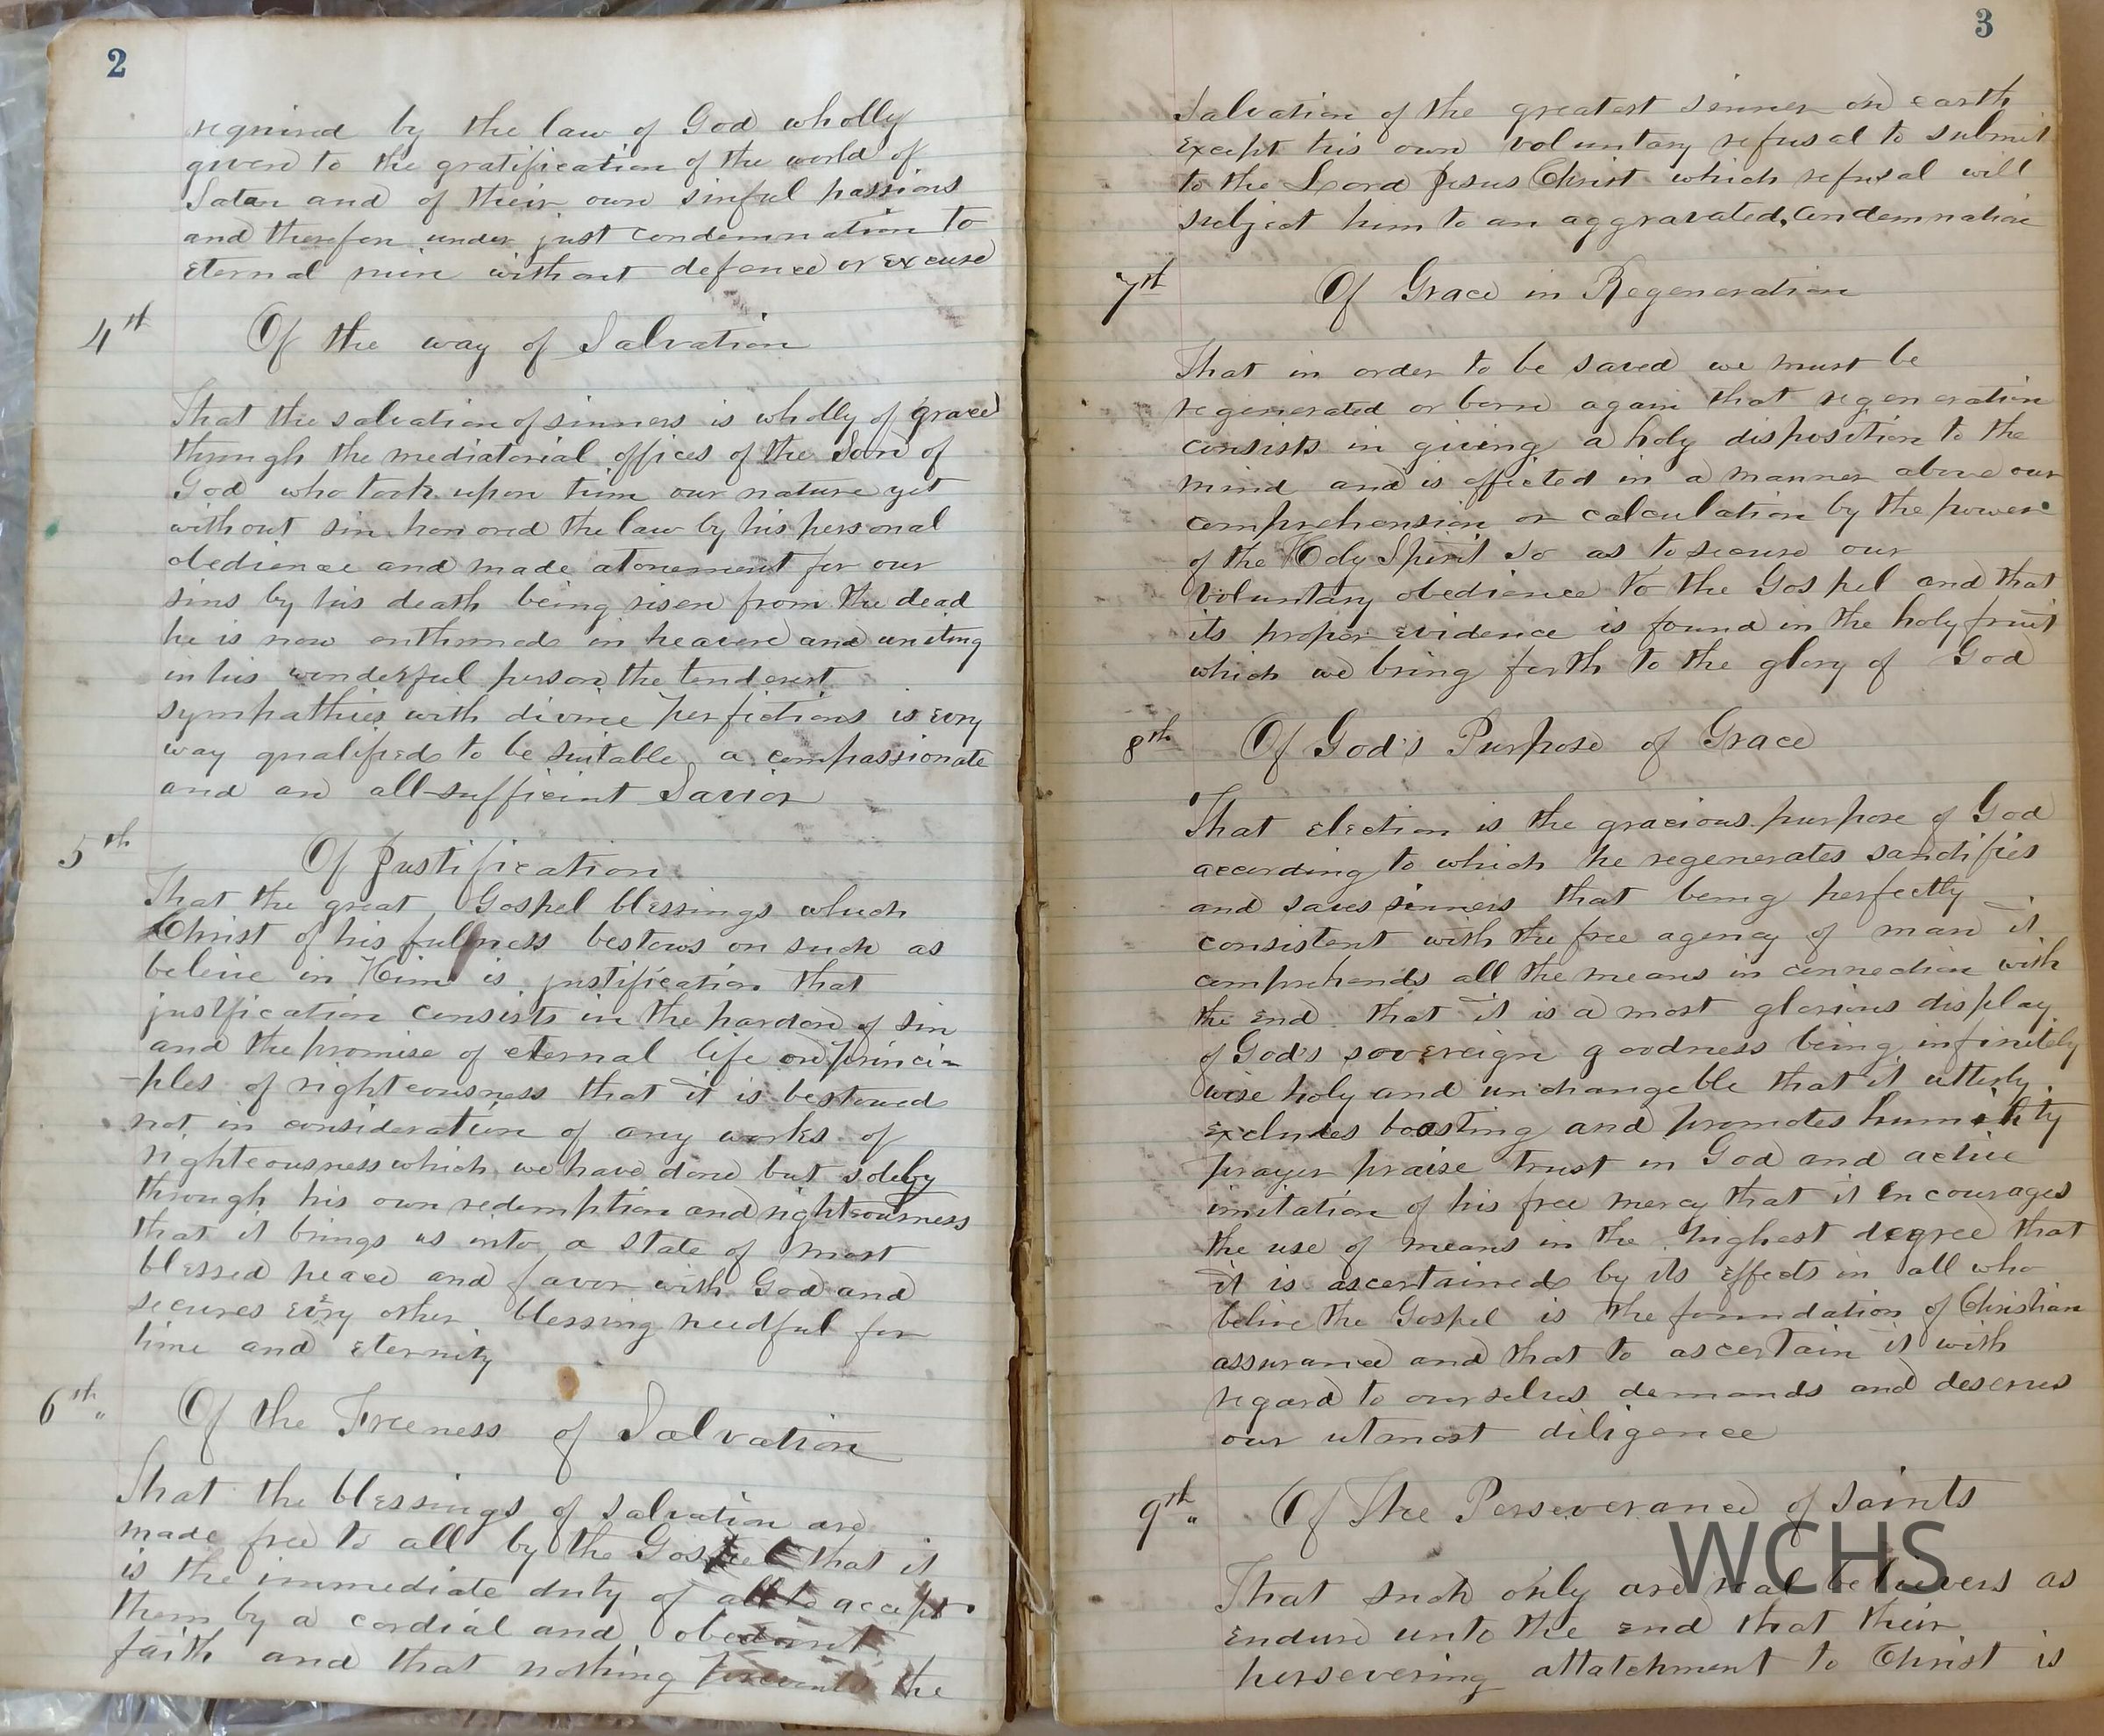 2
required by the law of God wholly
given to the gratification of the world of
Satan and of their own sinful passions
and therefore under just condemnation to
eternal ruin without defence or excuse
4th Of the way of Salvation
That the salvation of sinners is wholly of grace
through the mediatorial offices of the Son of
God who took upon him our nature yet
without sin honored the law by his personal
obedience and made atonement for our
sins by his death being risen from the dead
he is now enthroned in heaven and uniting
in his wonderful person the tenderest
sympathies with divine perfections is evry
way qualified to be suitable a compassionate
and an all-sufficient Savior
5th Of Justification
That the great Gospel blessings which
Christ of his fullness bestows on such as
beleive in Him is justification that
justification consists in the pardon of sin
and the promise of eternal life on princi-
-ples of righteousness that it is bestowed
not in consideration of any works of
righteousness which we have done but solely
through his own redemption and righteousness
that it brings us into a state of most
blessed peace and favor with God and
secures every other blessing needful for
time and eternity
6th Of the Freeness of Salvation
That the blessings of salvation are
made free to all by the Gospel that it
is the immediate duty of all to accept
them by a cordial and obedient
faith and that nothing prevents the
3
Salvation of the greatest sinner on earth
except his own voluntary refusal to submit
to the Lord Jesus Christ which refusal will
subject him to an aggravated condemnation
7th Of Grace in Regeneration
That in order to be saved we must be
regenerated or born again that regeneration
consists in giving a holy disposition to the
mind and is effected in a manner above our
comprehension or calculation by the power
of the Holy Spirit so as to secure our
voluntary obedience to the Gospel and that
its proper evidence is found in the holy fruit
which we bring forth to the glory of God
8th Of God's Purpose of Grace
That election is the gracious purpose of God
according to which he regenerates sanctifies
and saves sinners that being perfectly
consistent with the free agency of man it
comprehends all the means in connection with
the end that it is a most glorious display
of God's sovereign goodness being infinitely
wise holy and unchangeble that it utterly
excludes boasting and promotes humility
prayer praise trust in God and active
imitation of his free mercy that it encourages
the use of means in the highest degree that
it is ascertained by its effects in all who
belive the Gospel is the foundation of Christian
assurance and that to ascertain it with
regard to ourselves demands and deserves
our utmost diligence
9th Of The Perseverance of Saints
That such only are real believers as
endure unto the end that their
persevering attatchment to Christ is
WCHS